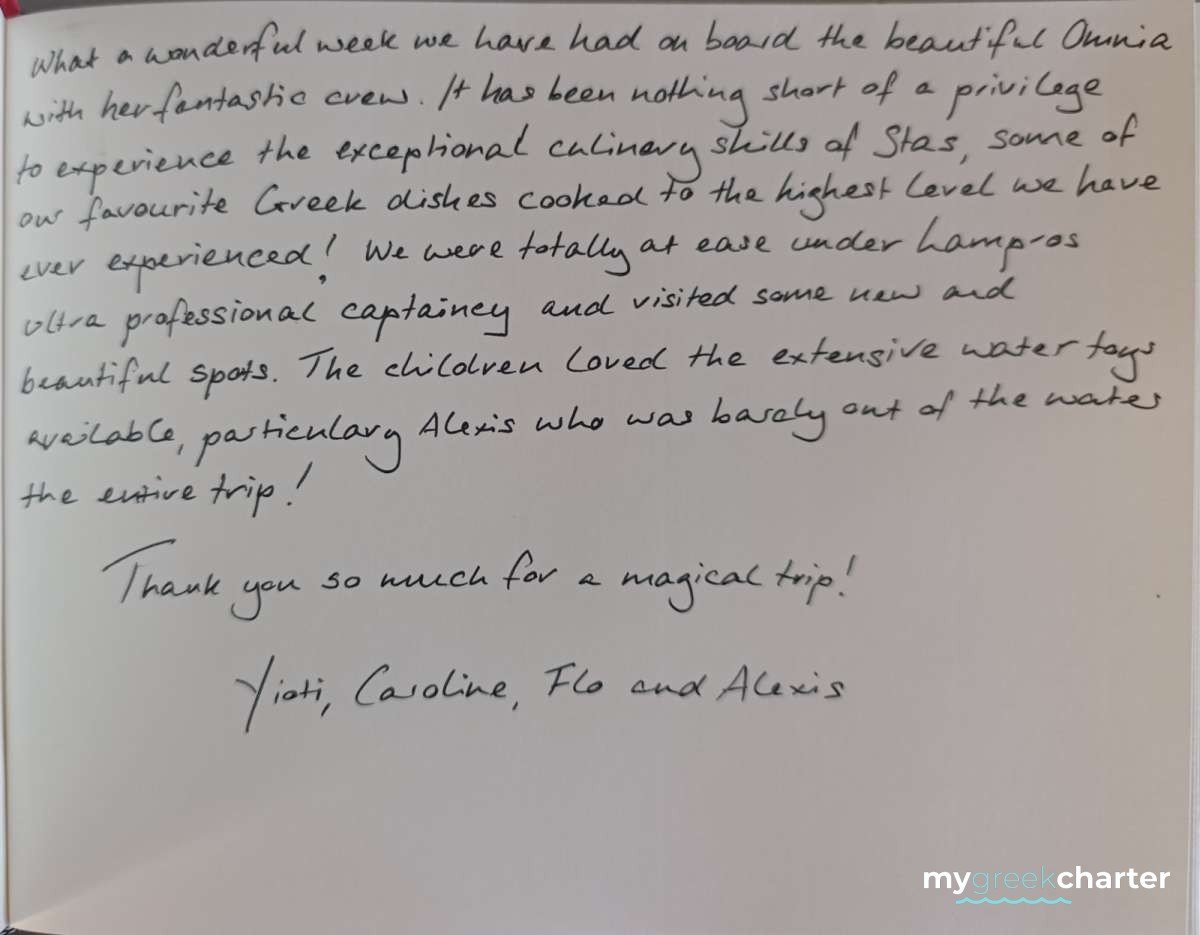 What a wonderful week we have had on board the beautiful Omnia
with her fantastic crew. It has been nothing short of a privilege
to experience the exceptional culinary skills of Stas, some of
our favourite Greek dishes cooked to the highest level we have
ever experienced! We were totally at ease under Lampros
ultra professional captaincy and visited some new and
beautiful spots. The children loved the extensive water toys
available, particulary Alexis who was barely out of the water
the entire trip!
Thank you so much for a magical trip!
Yioti, Caroline, Flo and Alexis
mygreekcharter